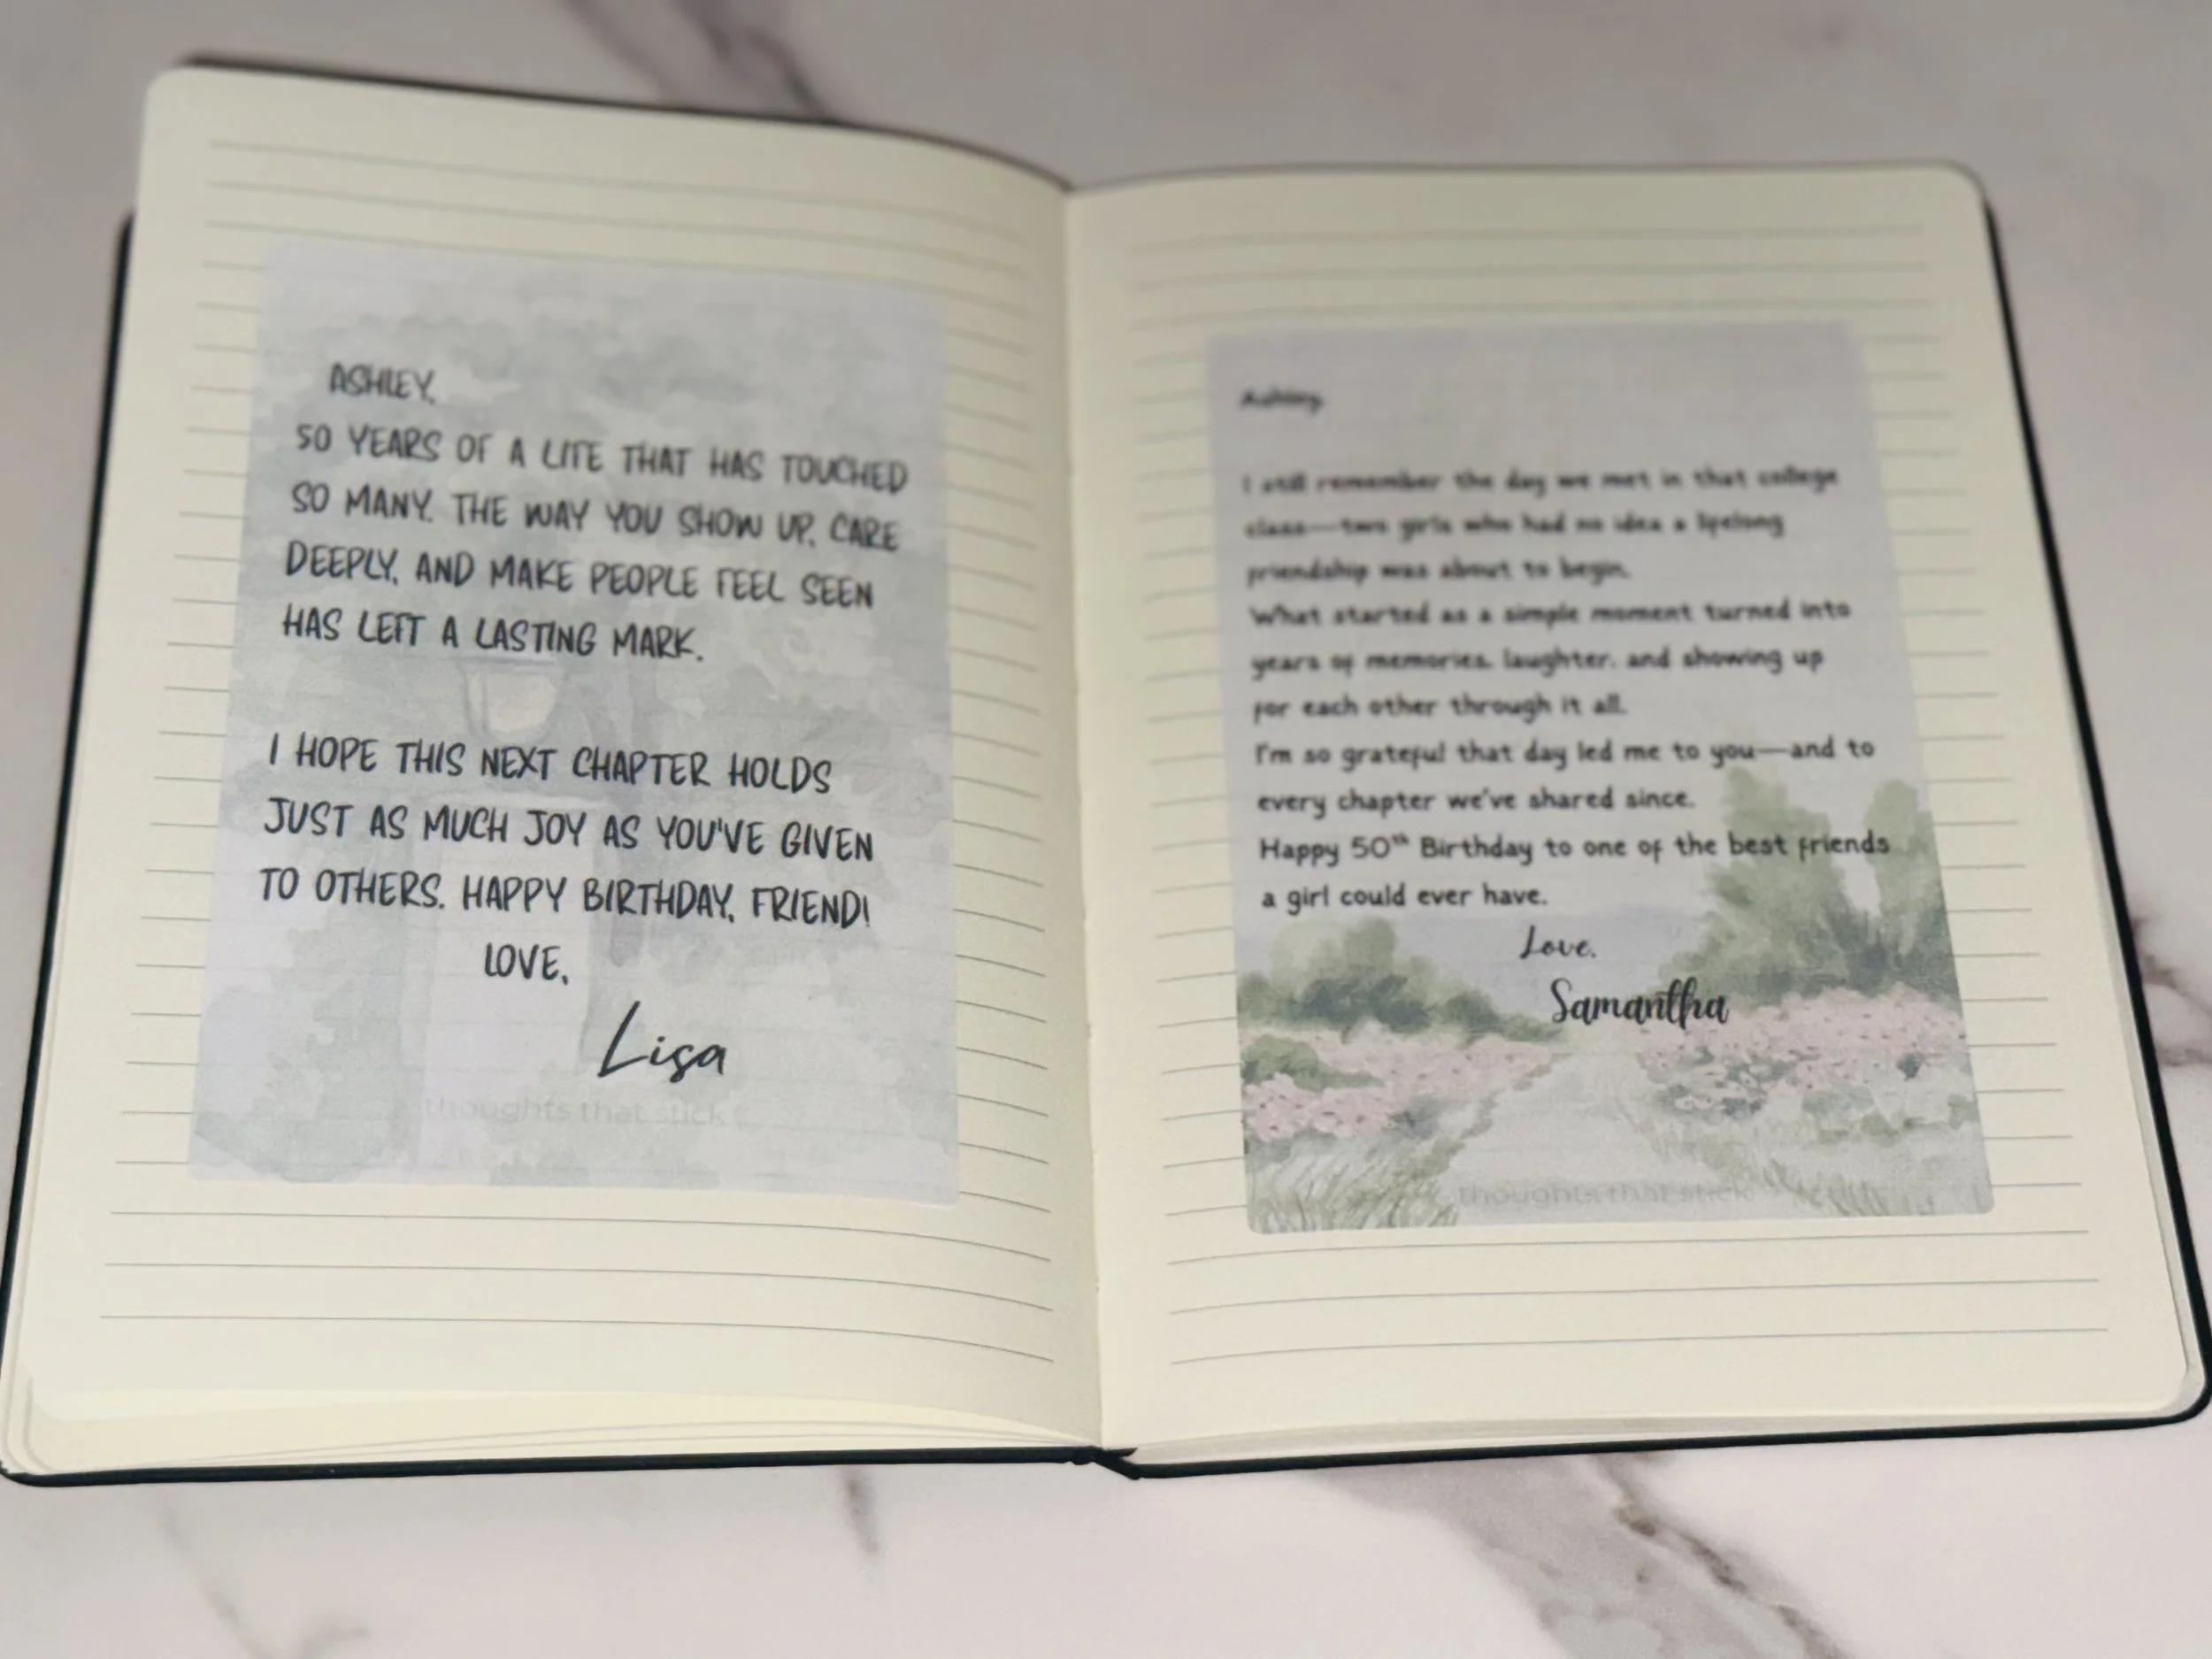 ASHLEY,
50 YEARS OF A LIFE THAT HAS TOUCHED
SO MANY. THE WAY YOU SHOW UP, CARE
DEEPLY, AND MAKE PEOPLE FEEL SEEN
HAS LEFT A LASTING MARK.
I HOPE THIS NEXT CHAPTER HOLDS
JUST AS MUCH JOY AS YOU'VE GIVEN
TO OTHERS. HAPPY BIRTHDAY, FRIEND!
LOVE,
Lisa
thoughts that stick
Ashley,
I still remember the day we met in that college
class—two girls who had no idea a lifelong
friendship was about to begin.
What started as a simple moment turned into
years of memories, laughter, and showing up
for each other through it all.
I'm so grateful that day led me to you—and to
every chapter we've shared since.
Happy 50th Birthday to one of the best friends
a girl could ever have.
Love,
Samantha
thoughts that stick